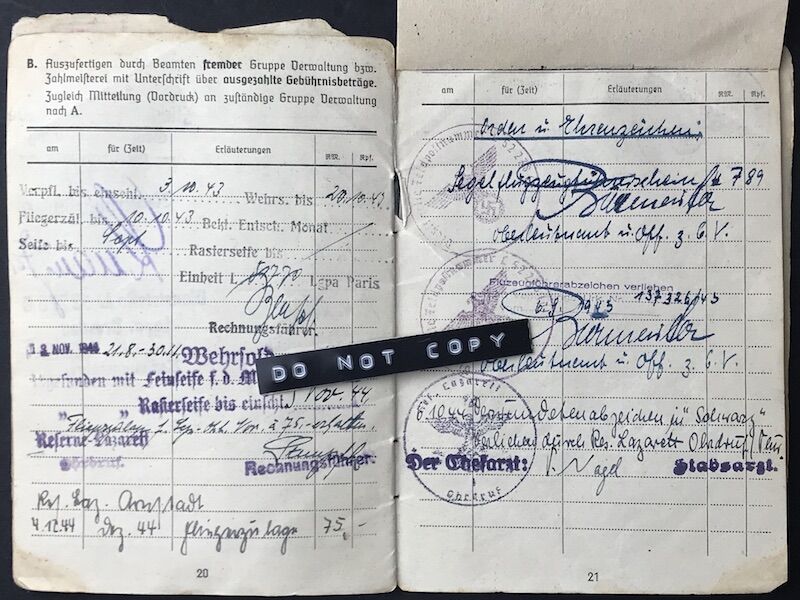 B. Auszufertigen durch Beamten fremder Gruppe Verwaltung bzw.
Zahlmeisterei mit Unterschrift über ausgezahlte Gebührnisbeträge.
Zugleich Mitteilung (Vordruck) an zuständige Gruppe Verwaltung
nach A.
am für (Zeit) Erläuterungen RM. Rpf.
Verpfl. bis einschl. 3.10.43 Wehrs. bis 20.10.43
Fliegerzul. bis 10.10.43 Bekl. Entsch. Monat
Seife bis Sept. Rasierseife bis
Einheit L 52770 Lgpa Paris
Rechnungsführer.
NOV. 1944 21.8.-30.11. Wehrsold
mit Feinseife f. d. M
Rasierseife bis einschl. Nov. 44
Reserve-Lazarett
Ohrdruf Rechnungsführer
Res. Laz. Arnstadt
4.12.44 Dez. 44 Fliegerzulage 75,-
20
am für (Zeit) Erläuterungen RM. Rpf.
Orden u. Ehrenzeichen:
Segelflugzeugführerschein 789
Oberleutnant u. Off. z. b. V.
Flugzeugführerabzeichen verliehen
1943 137326/43
Oberleutnant u. Off. z. b. V.
DO NOT COPY
Verwundetenabzeichen in "Schwarz"
verliehen durch Res. Lazarett Ohrdruf
Der Chefarzt: Nagel Stabsarzt.
Ohrdruf
21